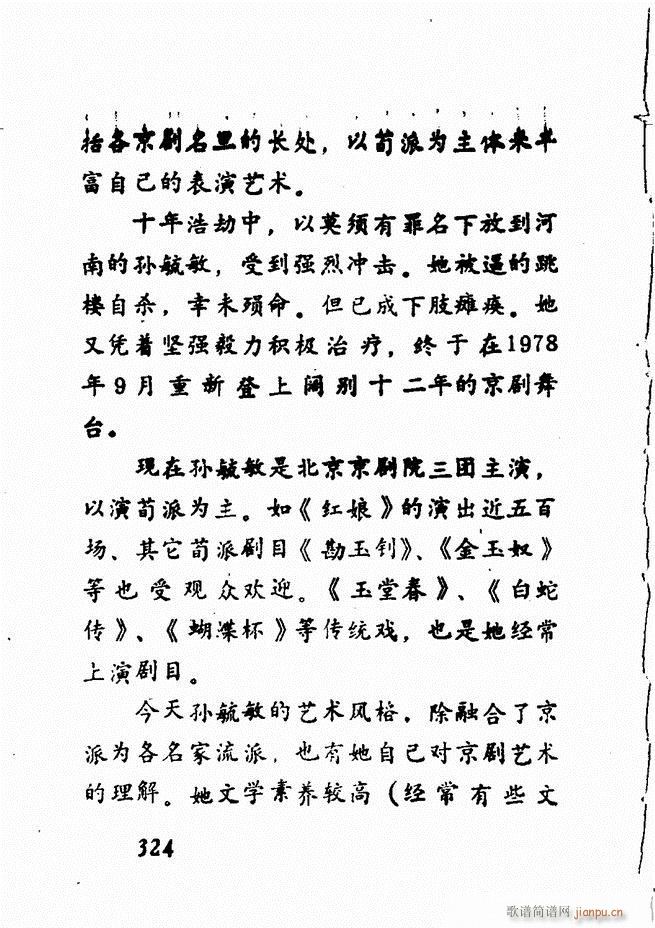 括各京剧名旦的长处，以荀派为主体来丰
富自己的表演艺术。
十年浩劫中，以莫须有罪名下放到河
南的孙毓敏，受到强烈冲击。她被逼的跳
楼自杀，幸未殒命。但已成下肢瘫痪。她
又凭着坚强毅力积极治疗，终于在1978
年9月重新登上阔别十二年的京剧舞
台。
现在孙毓敏是北京京剧院三团主演，
以演荀派为主。如《红娘》的演出近五百
场、其它荀派剧目《勘玉钊》、《金玉奴》
等也受观众欢迎。《玉堂春》、《白蛇
传》、《蝴蝶杯》等传统戏，也是她经常
上演剧目。
今天孙毓敏的艺术风格，除融合了京
派为各名家流派，也有她自己对京剧艺术
的理解。她文学素养较高（经常有些文
324
歌谱简谱网 jianpu.cn